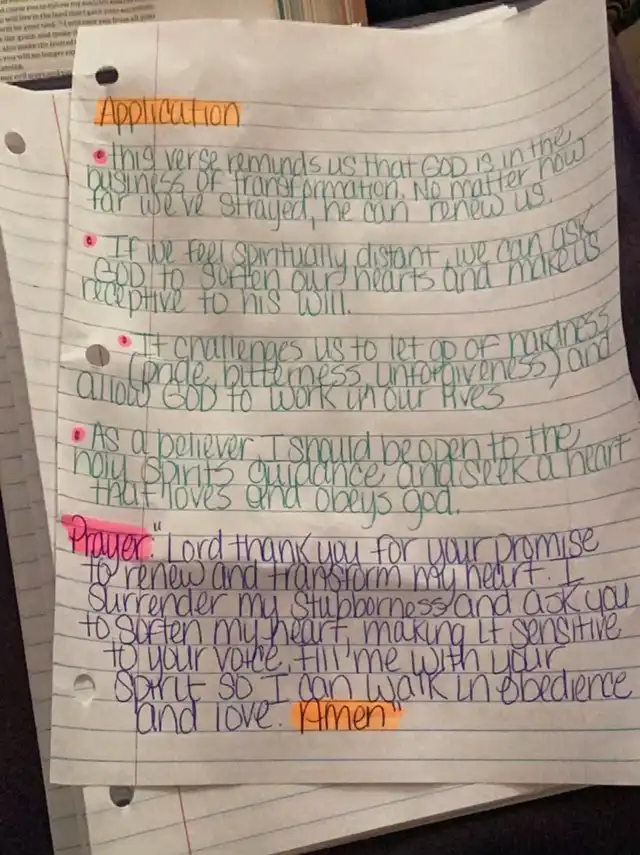 Application
• this verse reminds us that GOD is in the
business of transformation. No matter how
far we've strayed, he can renew us.
• If we feel spiritually distant, we can ask
GOD to soften our hearts and make us
receptive to his will.
• It challenges us to let go of hardness
(pride, bitterness, unforgiveness) and
allow GOD to work in our lives
• As a believer, I should be open to the
holy spirits guidance and seek a heart
that loves and obeys god.
Prayer: "Lord thank you for your promise
to renew and transform my heart. I
surrender my stubborness and ask you
to soften my heart, making it sensitive
to your voice, fill me with your
spirit so I can walk in obedience
and love. Amen"